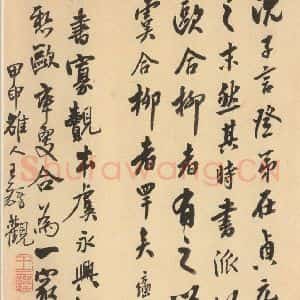 沈子言登第在貞元
之末然其時書派
歐合柳者有之
虞合柳者罕矣
書寡覯本虞永興
歐率更合為一家
甲申雒人王鐸觀
Shufawang.CN